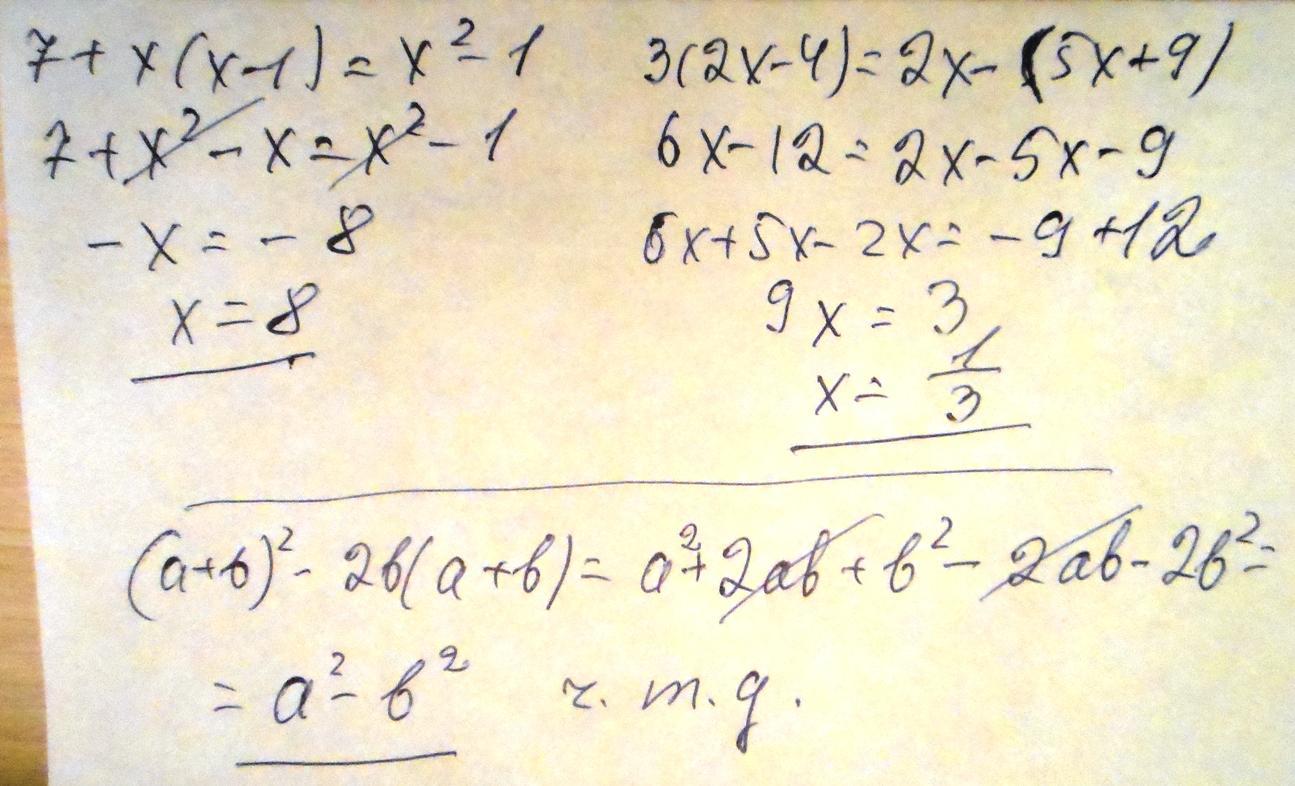 7 + x(x-1) = x² - 1
7 + x² - x = x² - 1
- x = - 8
x = 8
3(2x-4) = 2x - (5x+9)
6x - 12 = 2x - 5x - 9
6x + 5x - 2x = - 9 + 12
9x = 3
x = 1/3
(a+b)² - 2b(a+b) = a² + 2ab + b² - 2ab - 2b² =
= a² - b² ч. т. д.